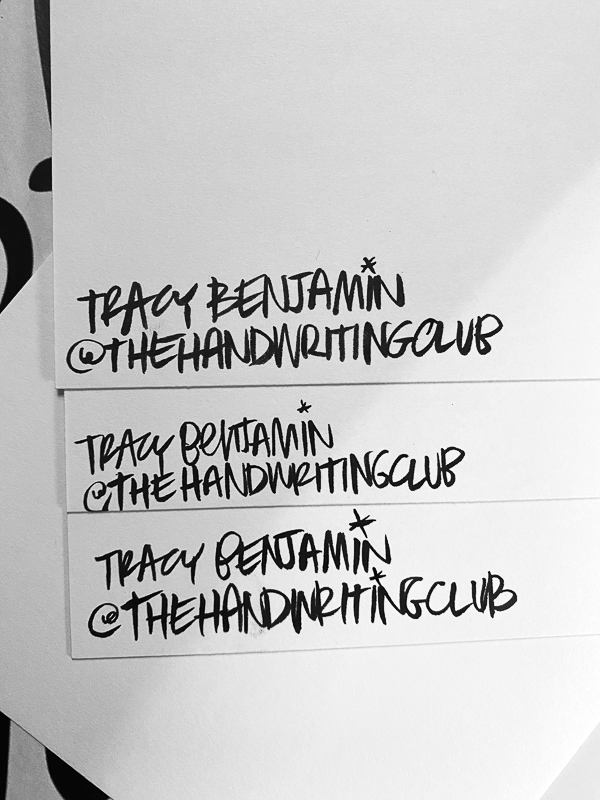 TRACY BENJAMiN
@THEHANDWRITINGCLUB
TRACY BENJAMiN
@THEHANDWRITINGCLUB
TRACY BENJAMiN
@THEHANDWRITiNGCLUB